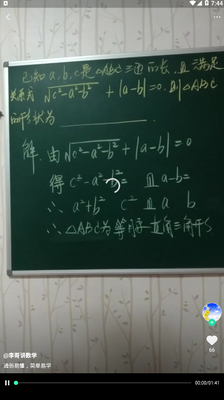 7:44
已知a,b,c是△ABC三边的长,且满足
关系式√c²-a²-b² + |a-b|=0,则△ABC
的形状为
解:由√c²-a²-b² + |a-b|=0
得c²-a² b²= 且a-b=
∴ a²+b² c² 且a b
∴ △ABC为等腰直角三角形
66
@李哥讲数学
00:00/01:41